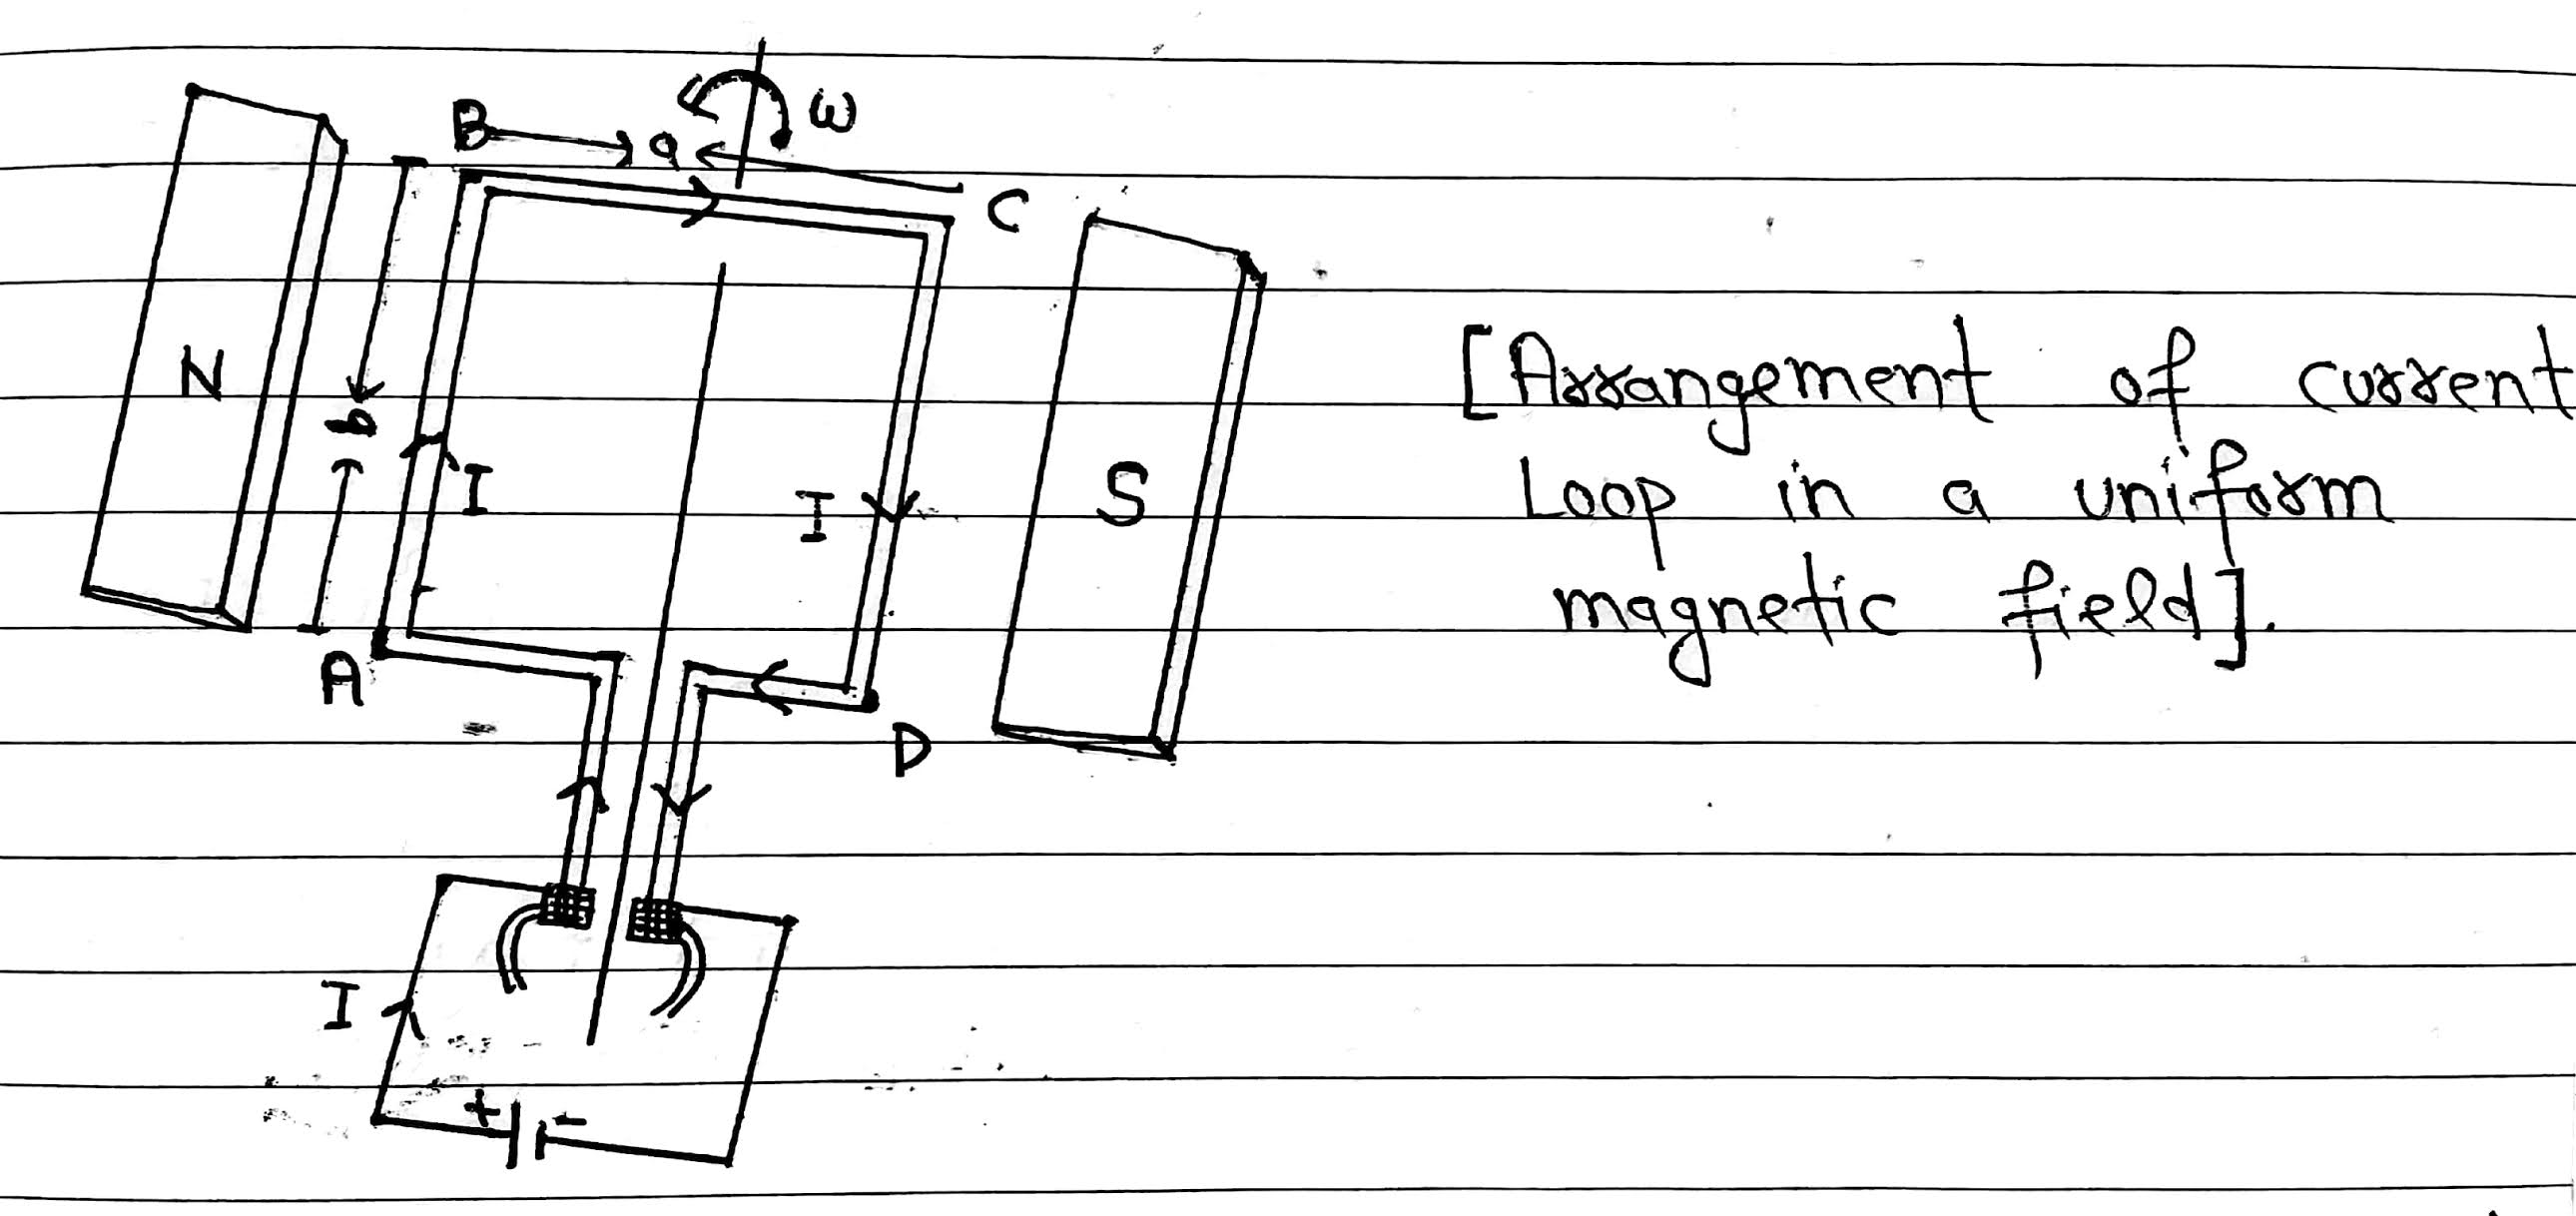 ω
B
a
C
N
b
I
I
S
A
D
I
+ -
[Arrangement of current
Loop in a uniform
magnetic field].